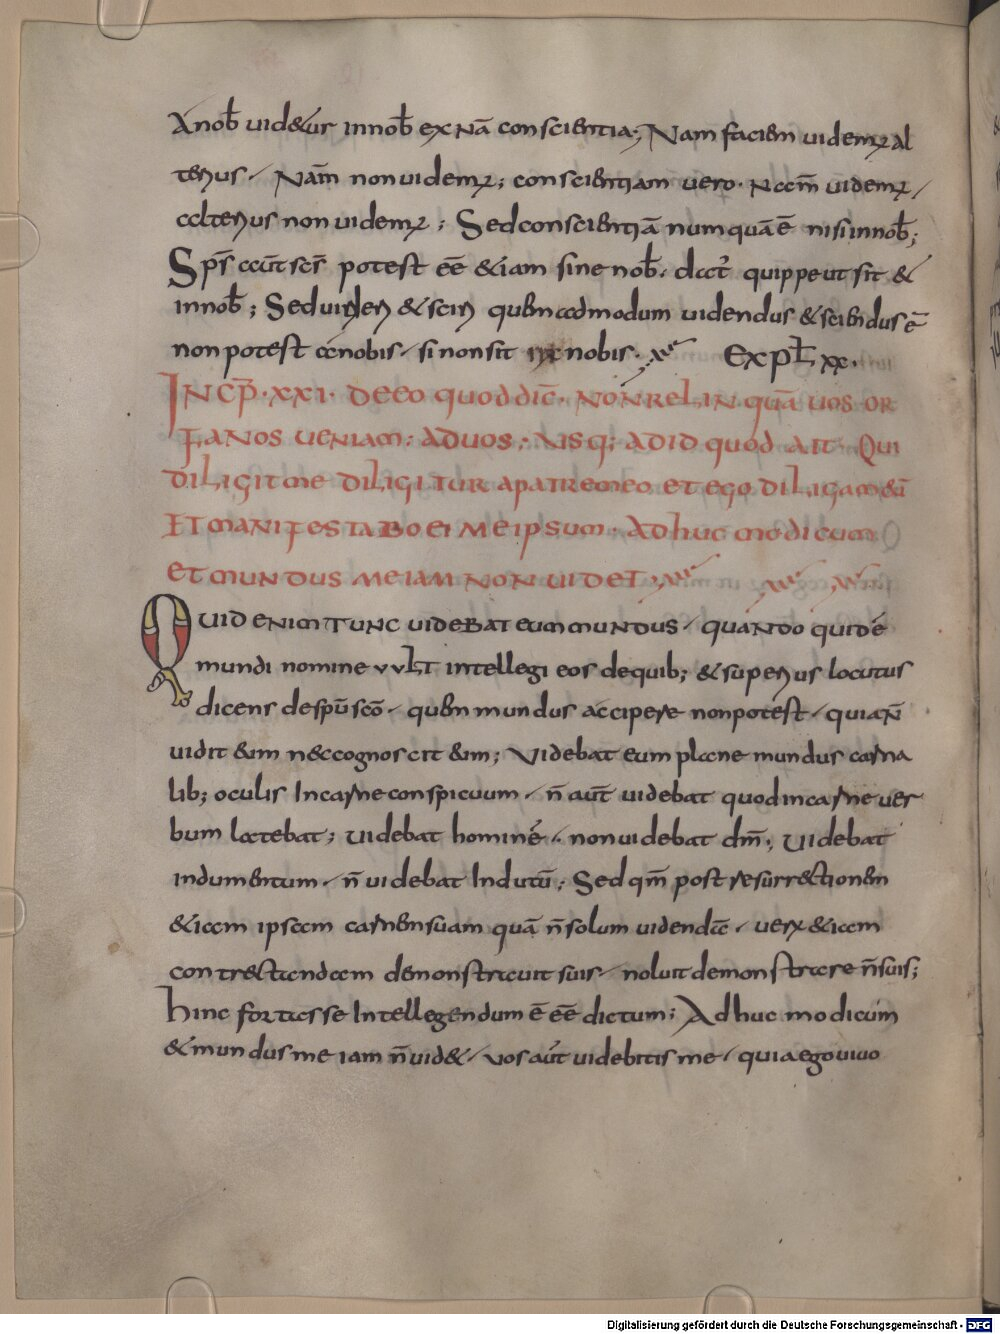 A nob̄ uidetur in nob̄ ex nā conscientia; Nam faciem uidemꝰ al
terius. Nam̄ non uidemꝰ; conscientiam uero nccm̄ uidemꝰ.
alterius non uidemꝰ; Sed conscientiā numquā ē nisi in nob̄;
Sp̄s aūt sc̄s potest ēē &iam sine nob̄. dat̄ quippe ut sit &
in nob̄; Sed uideri & sciri quem ad modum uidendus & sciendus ē
non potest a nobis. si non sit nobis. Expl̄ xx.
INCP̄. XXI. DE EO QUOD DIC̄. NON RELINQUĀ UOS OR
FANOS UENIAM; AD UOS; USQ; AD ID QUOD AIT. QUI
DILIGIT ME DILIGITUR A PATRE MEO ET EGO DILIGAM EŪ
ET MANIFESTABO EI MEIPSUM. ADHUC MODICUM
ET MUNDUS ME IAM NON UIDET;
QUID ENIM TUNC UIDEBAT EUM MUNDUS. QUANDO quidē
mundi nomine VULT intellegi eos de quib; & superius locutus
dicens de sp̄u sc̄o. quem mundus accipere non potest. quia n̄
uidit eum nec cognoscit eum; Videbat eum plane mundus carna
lib; oculis In carne conspicuum. n̄ aūt uidebat quod in carne uer
bum latebat; uidebat hominē. non uidebat dm̄; Uidebat
indumentum. n̄ uidebat Indutū; Sed qm̄ post resurrectionem
&iam ipsam carnem suam quā n̄ solum uidendā. uerꝰ &iam
contrectandam demonstrauit suis. noluit demonstrare n̄ suis;
hinc fortasse Intellegendum ē ēē dictum; Adhuc modicum
& mundus me iam n̄ uid&. uos aūt uidebitis me. quia ego uiuo
Digitalisierung gefördert durch die Deutsche Forschungsgemeinschaft - DFG